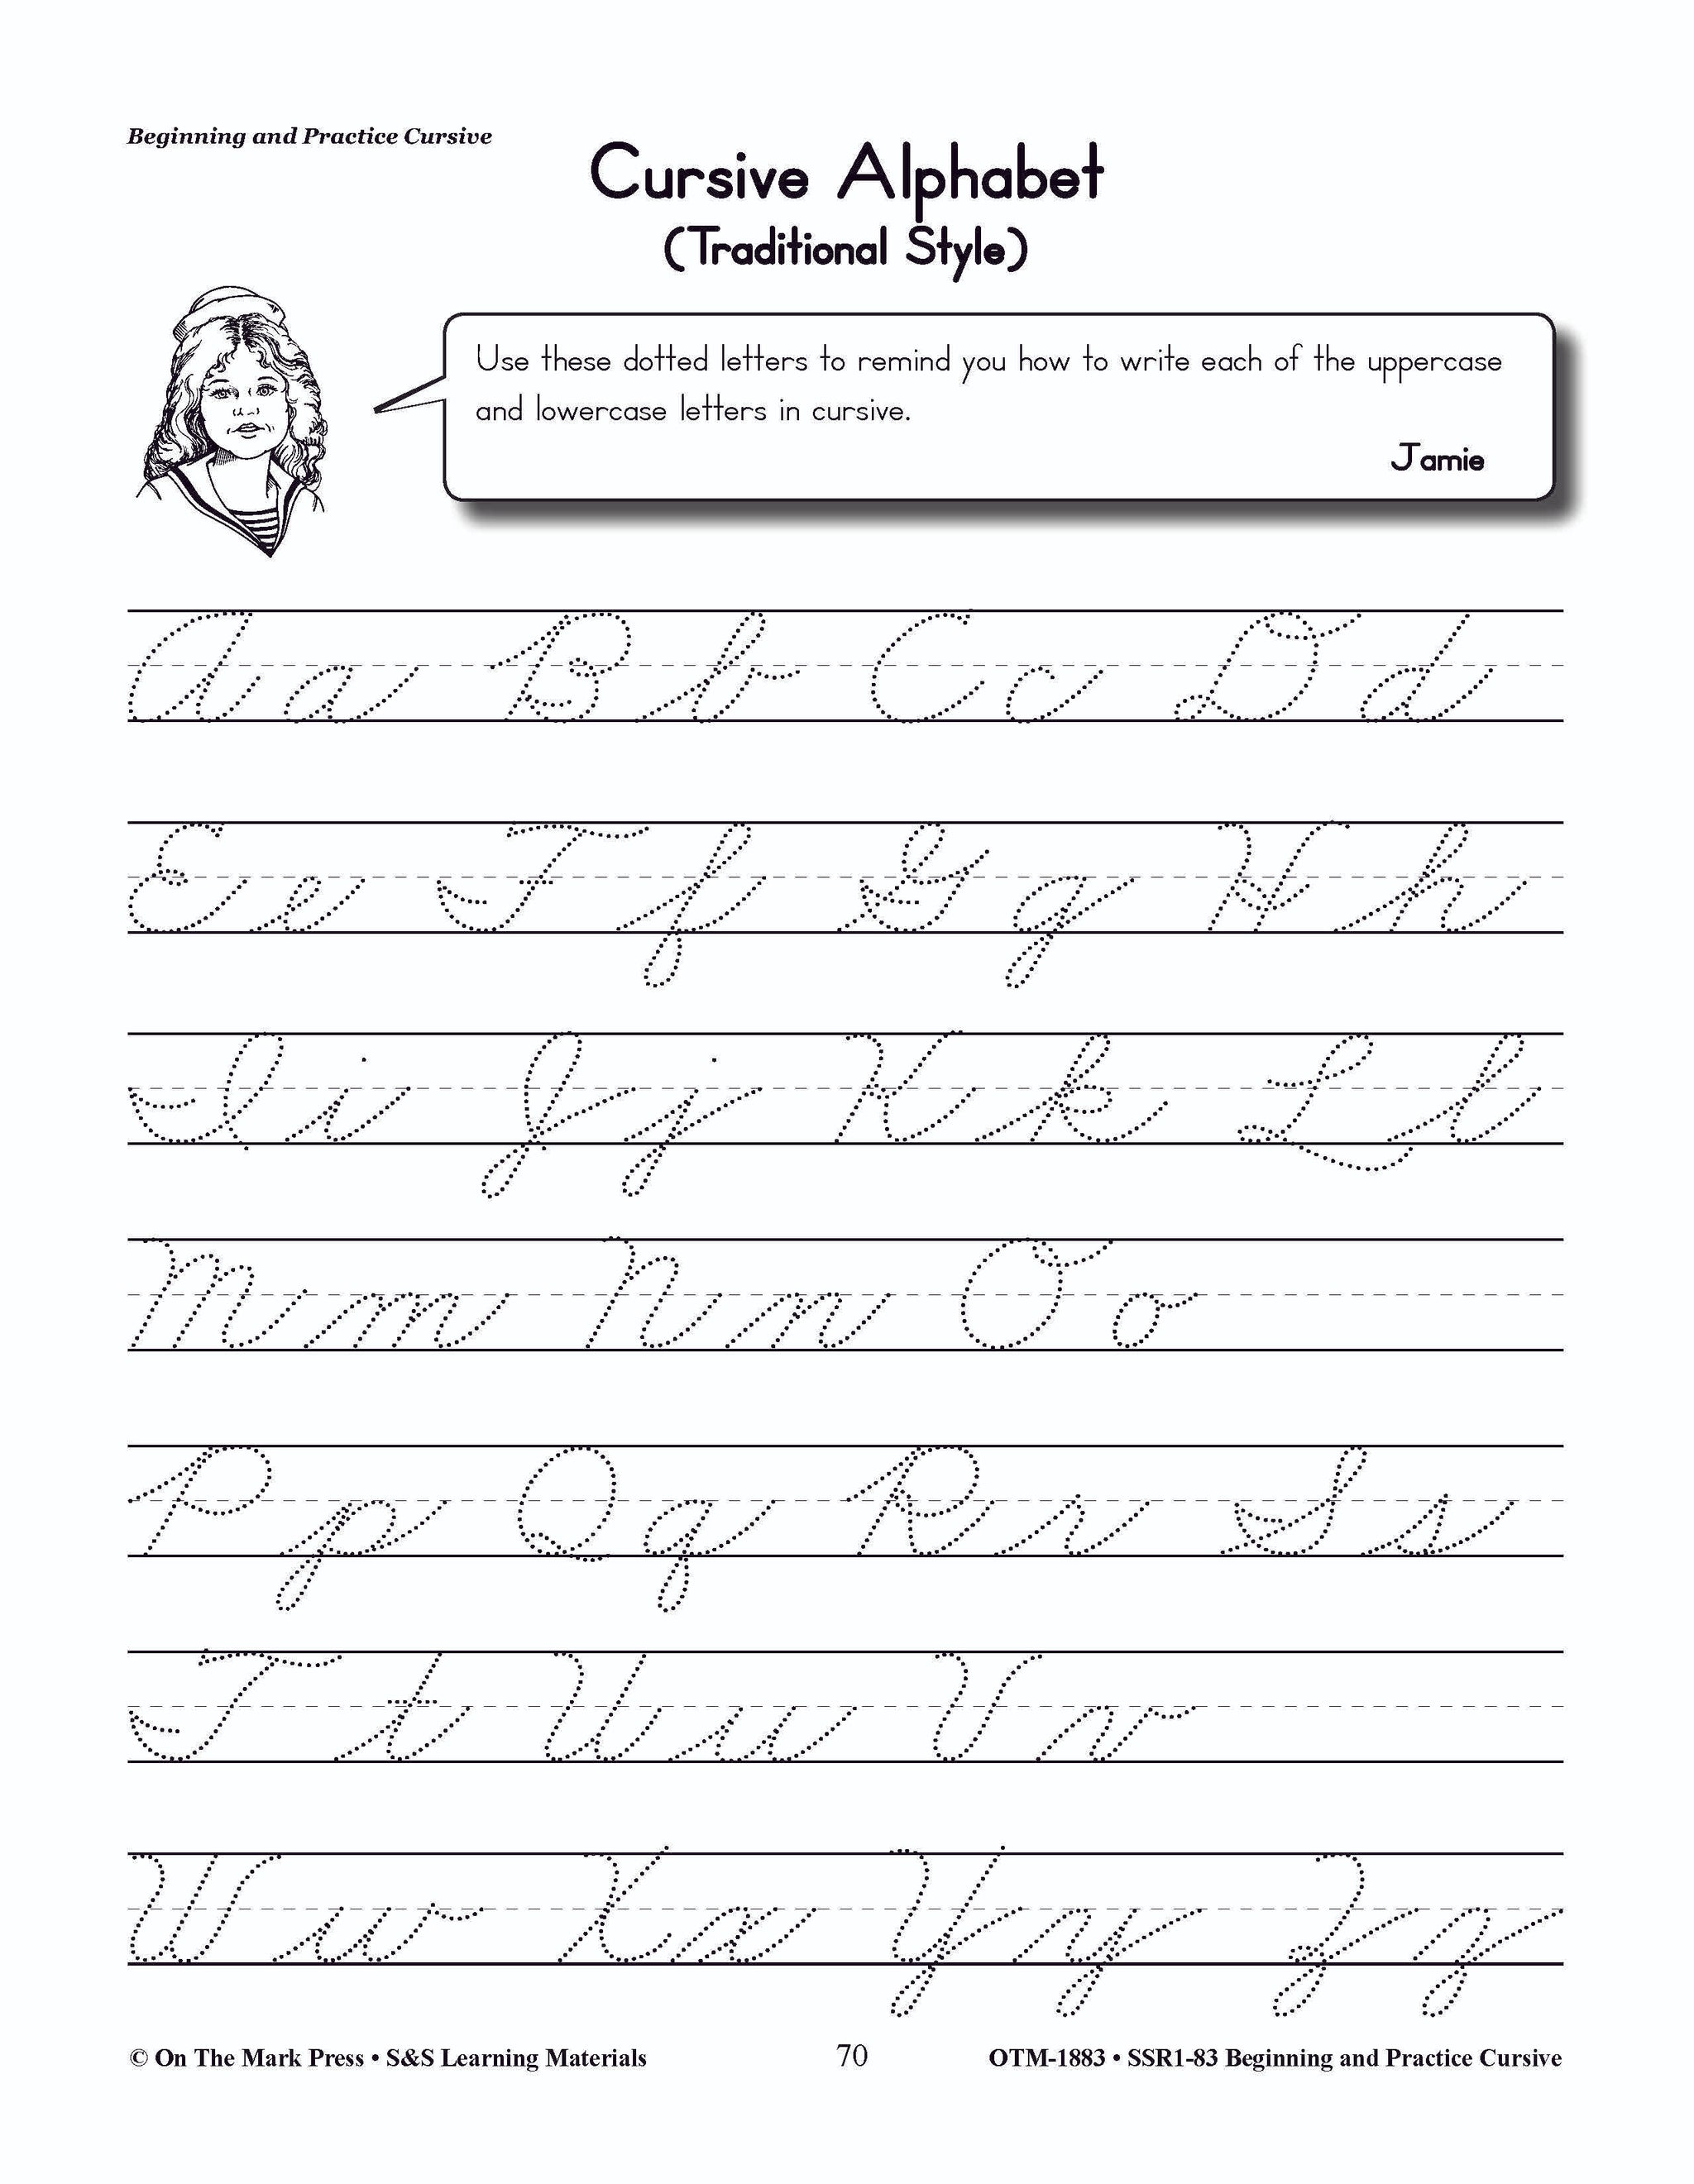 Beginning and Practice Cursive
Cursive Alphabet
(Traditional Style)
Use these dotted letters to remind you how to write each of the uppercase
and lowercase letters in cursive.
Jamie
A a B b C c D d
E e F f G g H h
I i J j K k L l
M m N n O o
P p Q q R r S s
T t U u V v
W w X x Y y Z z
© On The Mark Press • S&S Learning Materials 70 OTM-1883 • SSR1-83 Beginning and Practice Cursive